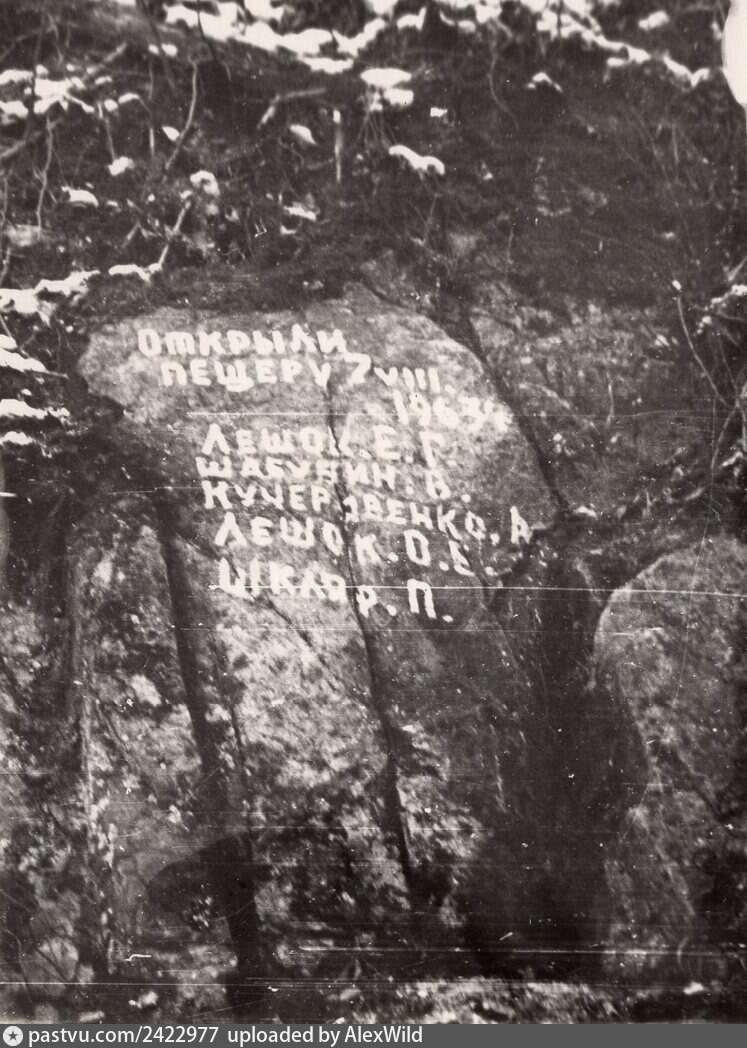 ОТКРЫЛИ
ПЕЩЕРУ 7 VIII.
ЛЕШОК.Е.Г.
ШАБУНИН.В.
КУЧЕРЯВЕНКО.А.
ЛЕШОК.О.Е.
ШКЛЯР.П.
pastvu.com/2422977 uploaded by AlexWild